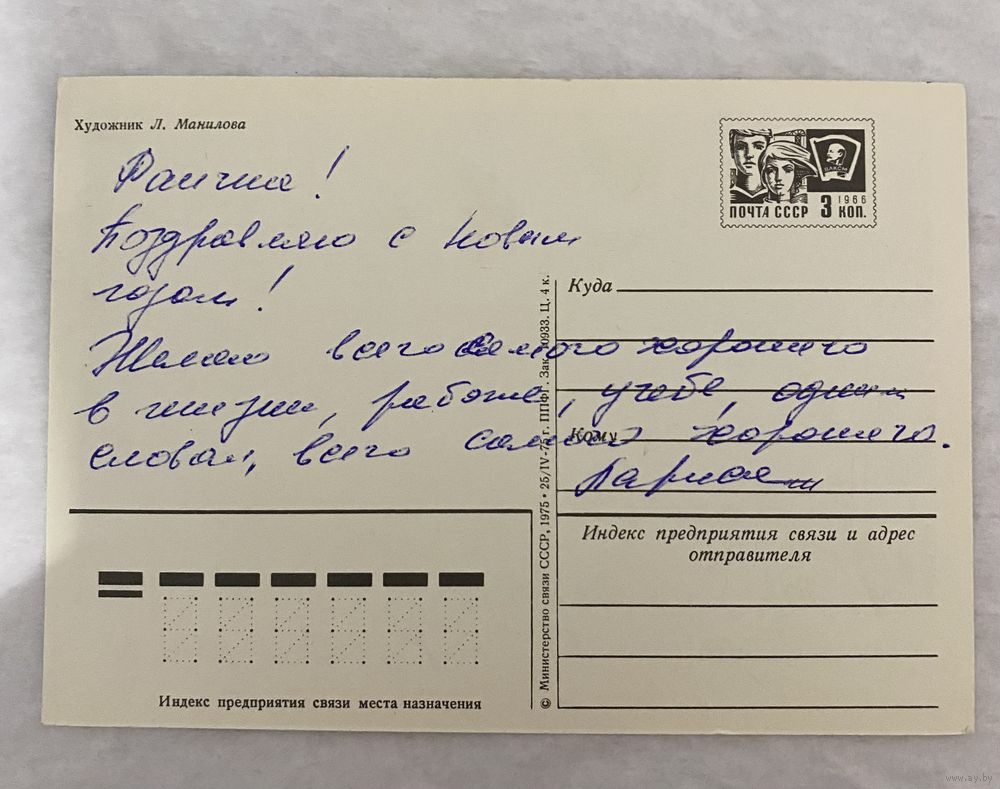 Художник Л. Манилова
ВЛКСМ
1966
ПОЧТА СССР 3 КОП.
Раичка!
Поздравляю с Новым
годом!
Желаю всего самого хорошего
в жизни, работе, учебе, одним
словом, всего самого хорошего.
Куда
Кому
Индекс предприятия связи и адрес
отправителя
Индекс предприятия связи места назначения
© Министерство связи СССР, 1975 • 25/IV-75 г. ППФГ. Зак. 10933. Ц. 4 к.
www.ay.by